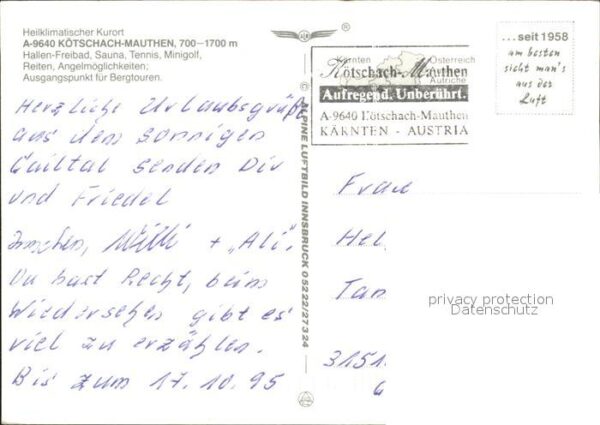 Heilklimatischer Kurort
A-9640 KÖTSCHACH-MAUTHEN, 700–1700 m
Hallen-Freibad, Sauna, Tennis, Minigolf,
Reiten, Angelmöglichkeiten;
Ausgangspunkt für Bergtouren.
Herzliche Urlaubsgrüße
aus dem sonnigen
Gailtal senden Dir
und Friedel
Willi + "Ali".
Du hast Recht, beim
Wiedersehen gibt es
viel zu erzählen.
Bis zum 17.10.95
ALPINE LUFTBILD INNSBRUCK 05222/27324
Kärnten Österreich
Kötschach-Mauthen
Autriche
Aufregend. Unberührt.
A-9640 Kötschach-Mauthen
KÄRNTEN - AUSTRIA
...seit 1958
am besten
sicht man's
aus der
Luft
Frau
Hel
Tan
3151
privacy protection
Datenschutz